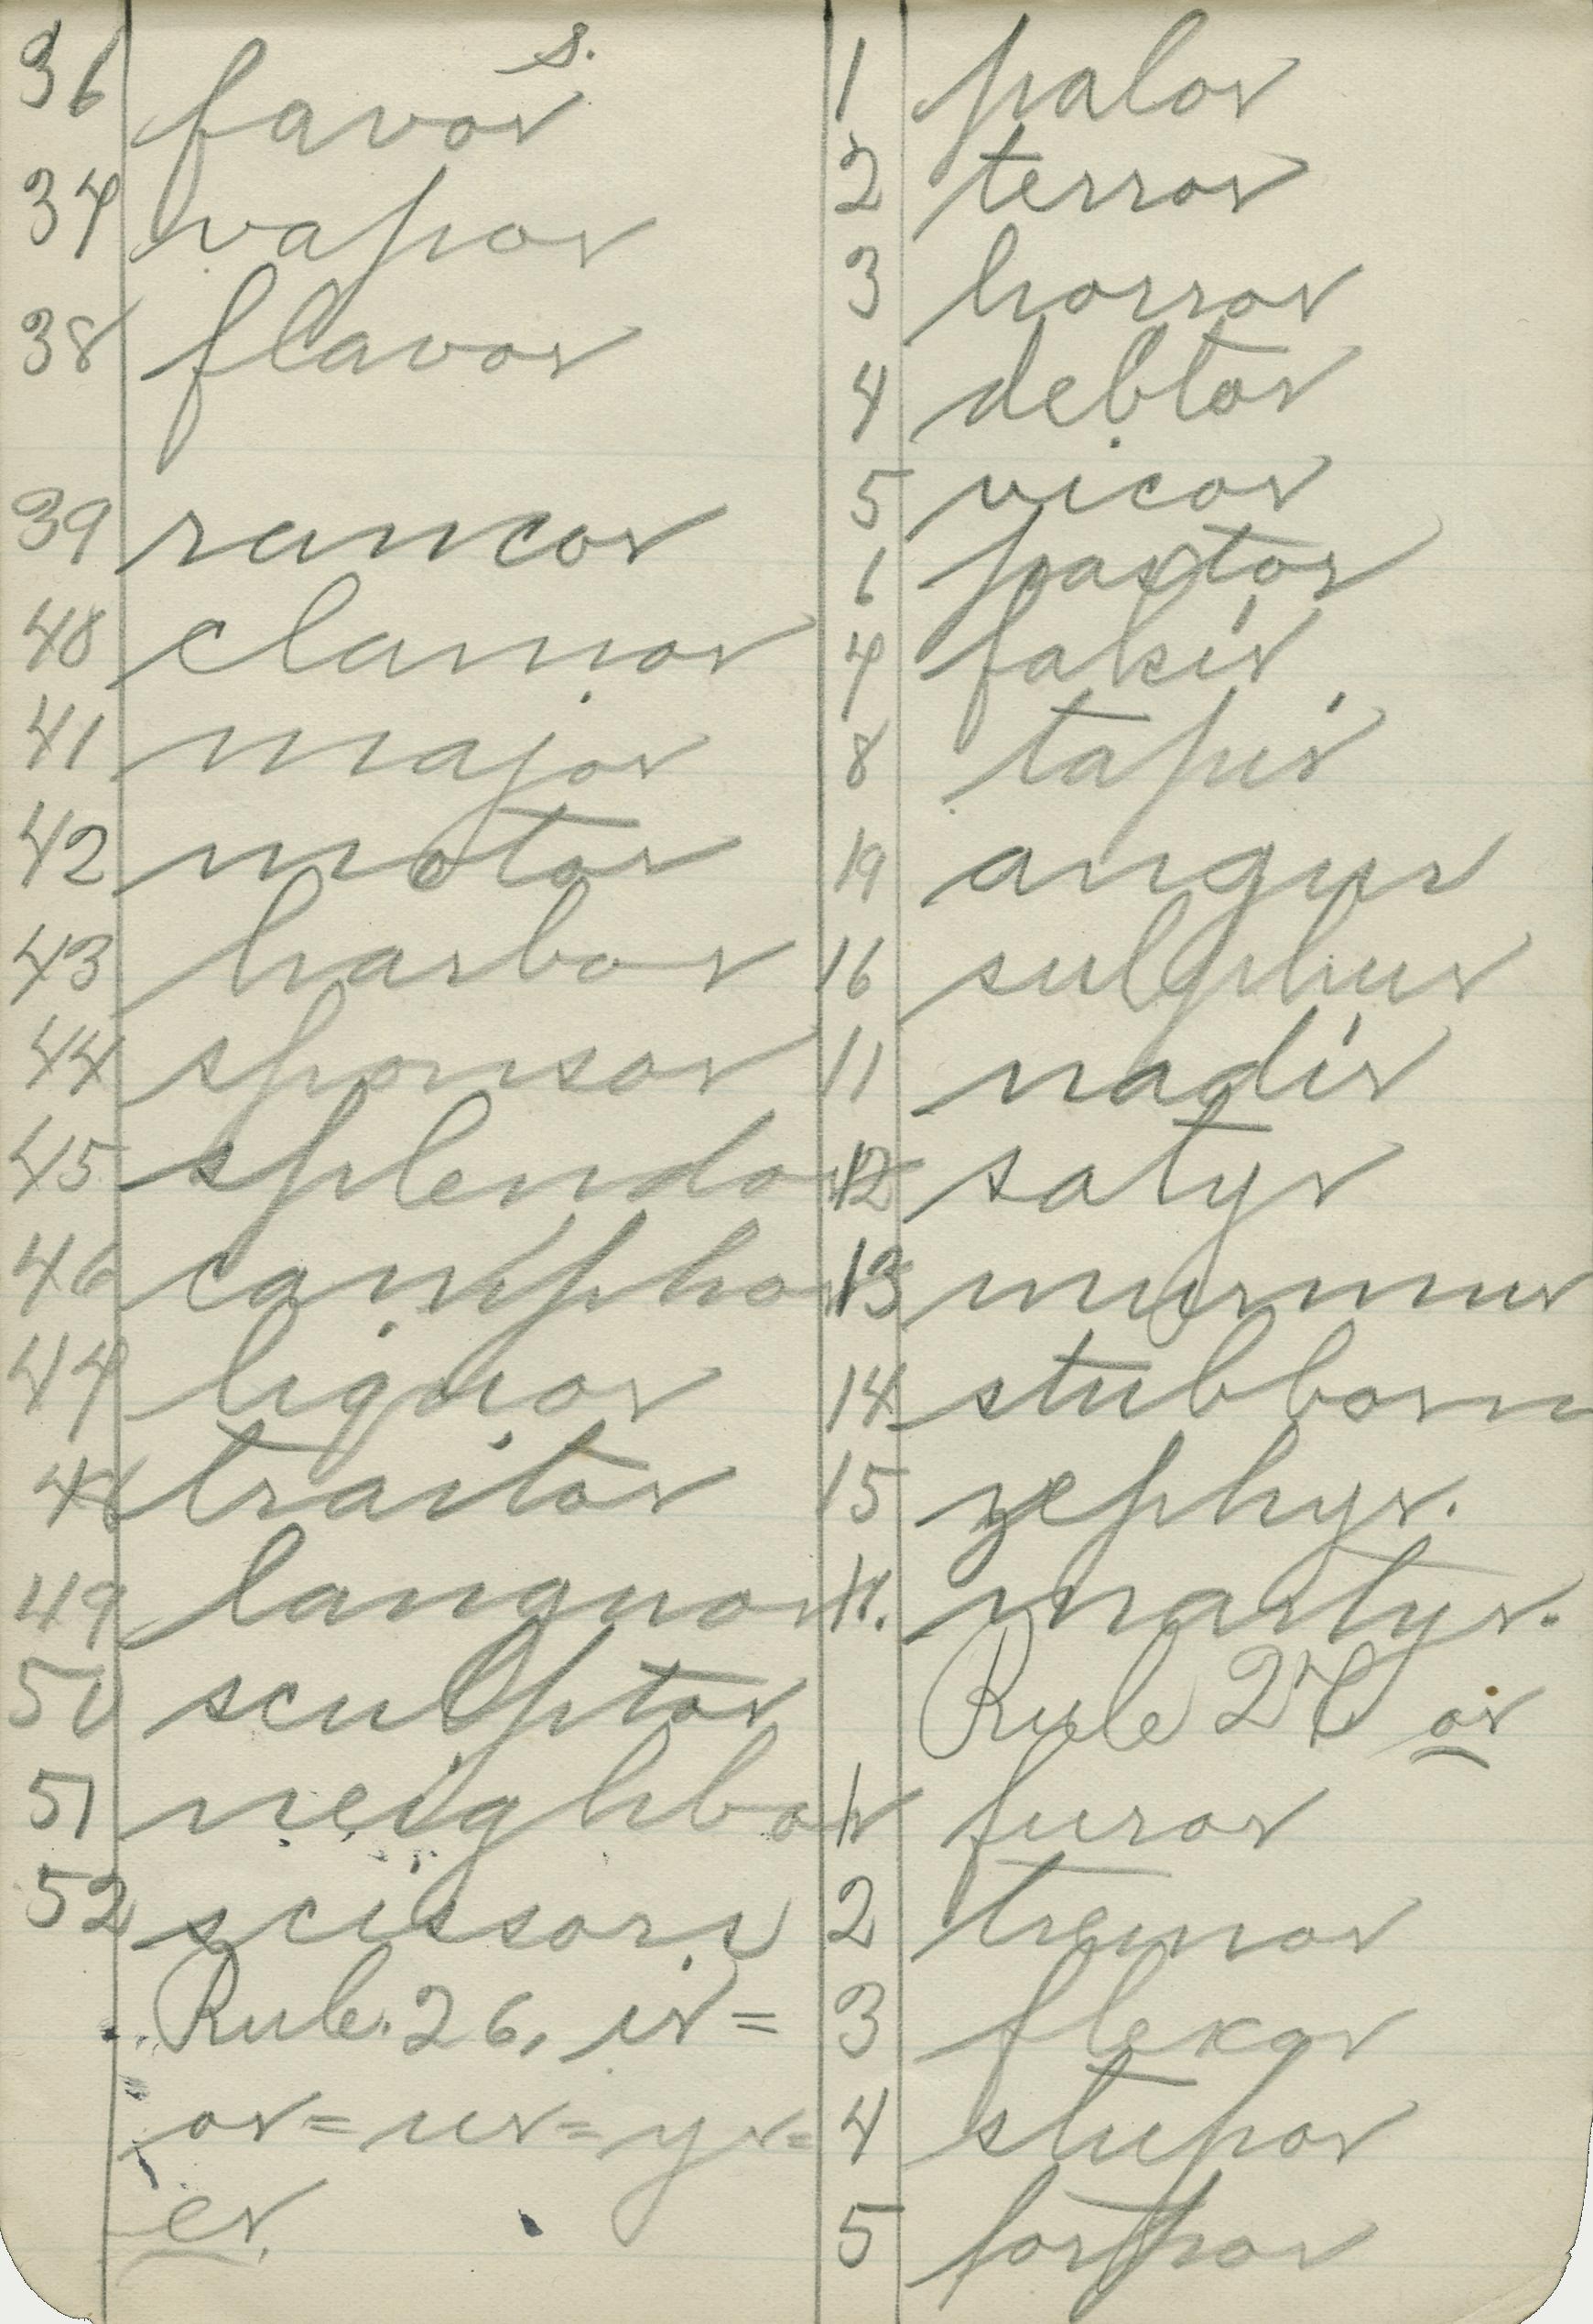 s.
36 favor
37 vapor
38 flavor
39 rancor
40 clamor
41 major
42 motor
43 harbor
44 sponsor
45 splendor
46 camphor
47 liquor
48 traitor
49 languor
50 sculptor
51 neighbor
52 scissors
Rule. 26, ir =
or = ur = yr =
er.
1 palor
2 terror
3 horror
4 debtor
5 vicor
6 pastor
7 fakir
8 tapir
19 angur
10 sulphur
11 nadir
12 satyr
13 murmur
14 stubborn
15 zephyr.
martyr.
Rule 27 or
1 furor
2 tremor
3 flexor
4 stupor
5 torpor